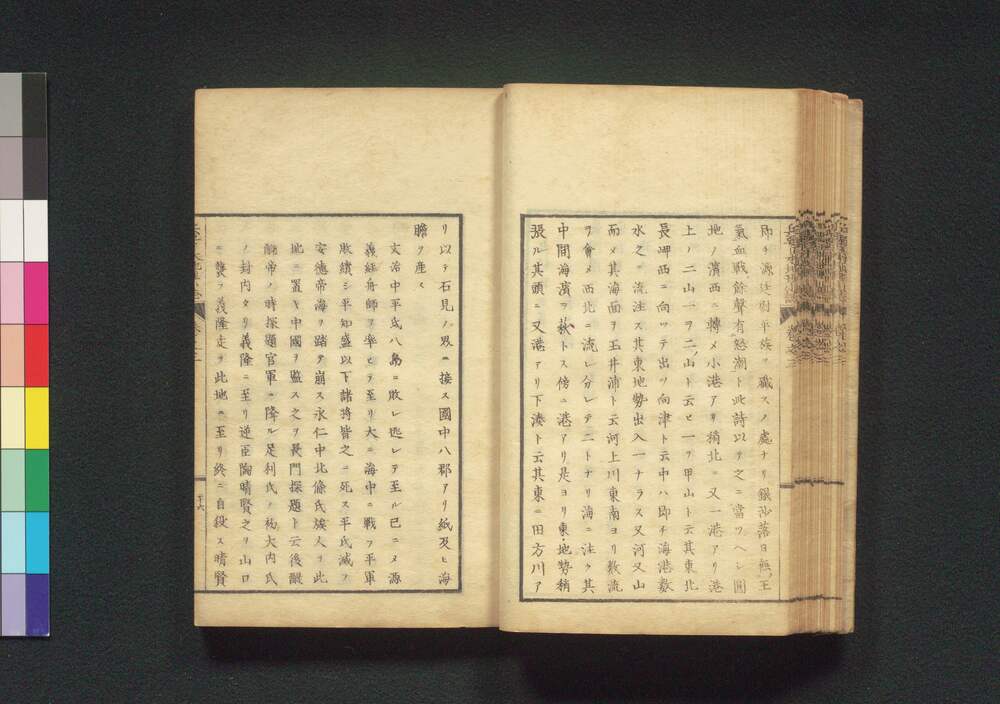 即チ源廷尉平族ヲ殲スノ處ナリ銀沙落日無王
氣血戰餘聲有怒潮ト此詩以テ之ニ當ツヘシ圓
地ノ濱西ニ轉メ小港アリ稍北ニ又一港アリ港
上ノ二山一ヲ二山ト云ヒ一ヲ甲山ト云其東北
長岬西ニ向ツテ出ツ向津ト云中ハ即チ海港数
水之ニ流注ス其東地勢出入一ナラス又河又山
而メ其海面ヲ玉井浦ト云河上川東南ヨリ数流
ヲ會メ西北ニ流レ分レテ二トナリ海ニ注ク其
中間海濱ヲ萩トス傍ニ港アリ是ヨリ東地勢稍
張ル其頭ニ又港アリ下湊ト云其東ニ田方川ア
リ以テ石見ノ界ニ接ス國中八郡アリ紙及ヒ海
膽ヲ産ス
文治中平氏八島ニ敗レ逃レテ至ル已ニメ源
義経舟師ヲ率ヒテ至リ大ニ海中ニ戰フ平軍
敗績シ平知盛以下諸将皆之ニ死ス平氏滅フ
安德帝海ヲ踏テ崩ス永仁中北條氏族人ヲ此
地ニ置キ中國ヲ監ス之ヲ長門探題ト云後醍
醐帝ノ時探題官軍ニ降ル足利氏ノ初大内氏
ノ封内タリ義隆ニ至リ逆臣陶晴賢之ヲ山口
ニ襲フ義隆走ヲ此地ニ至リ終ニ自殺ス晴賢
十六